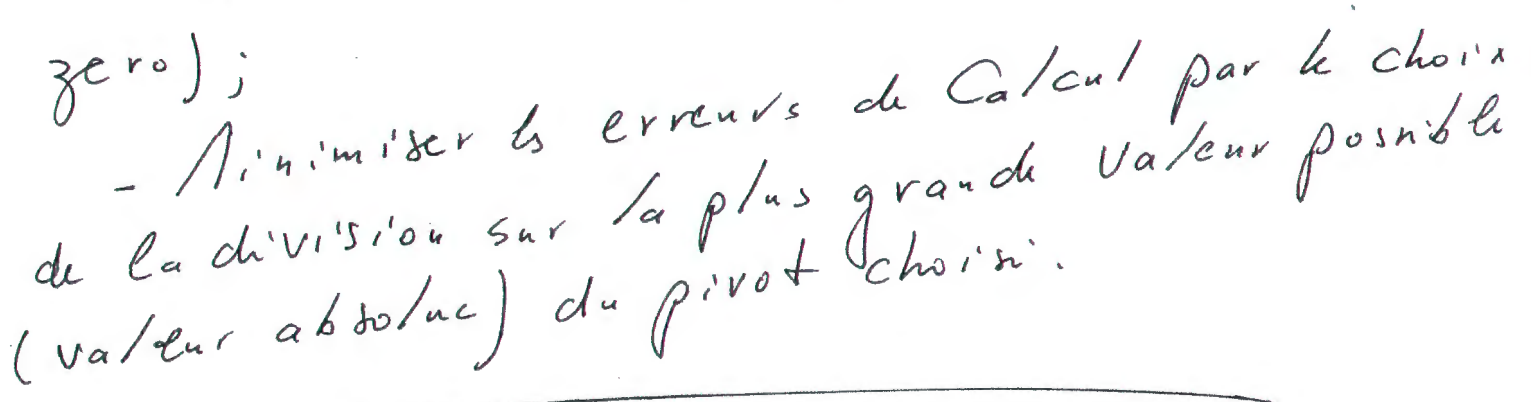 zero) ;
- Minimiser les erreurs de Calcul par le choix
de la division sur la plus grande valeur possible
(valeur absolue) du pivot choisi.